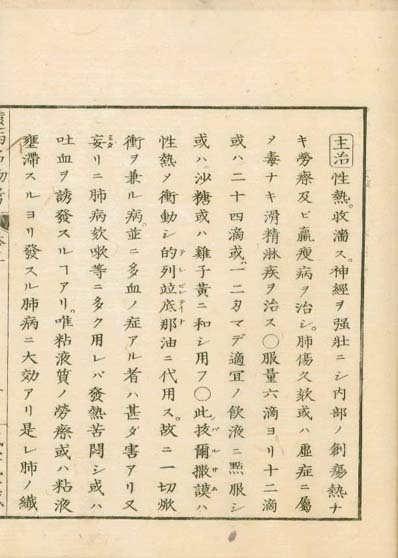 主治 性熱。收濇ス。神經ヲ强壯ニシ内部ノ創瘍熱ナ
キ勞瘵及ビ羸瘦病ヲ治シ。肺傷久欬或ハ虛症ニ屬
ヲ毒ナキ滑精淋疾ヲ治ス〇服量六滴ヨリ十二滴
或ハ二十四滴或ハ一二刄マデ適宜ノ飮液ニ點服シ
或ハ沙糖或ハ雞子黄ニ和シ用フ〇此拔爾撒謨ハ
性熱メ衝動シ的列竝底那油ニ代用ス。故ニ一切焮
衝ヲ兼ル病。並ニ多血ノ症アル者ハ甚ダ害アリ又
妄リニ肺病欬嗽等ニ多ク用レバ發熱苦悶シ或ハ
吐血ヲ誘發スルヿアリ。唯粘液質ノ勞瘵或ハ粘液
壅滯スルヨリ發スル肺病ニ大効アリ是レ肺ノ纎